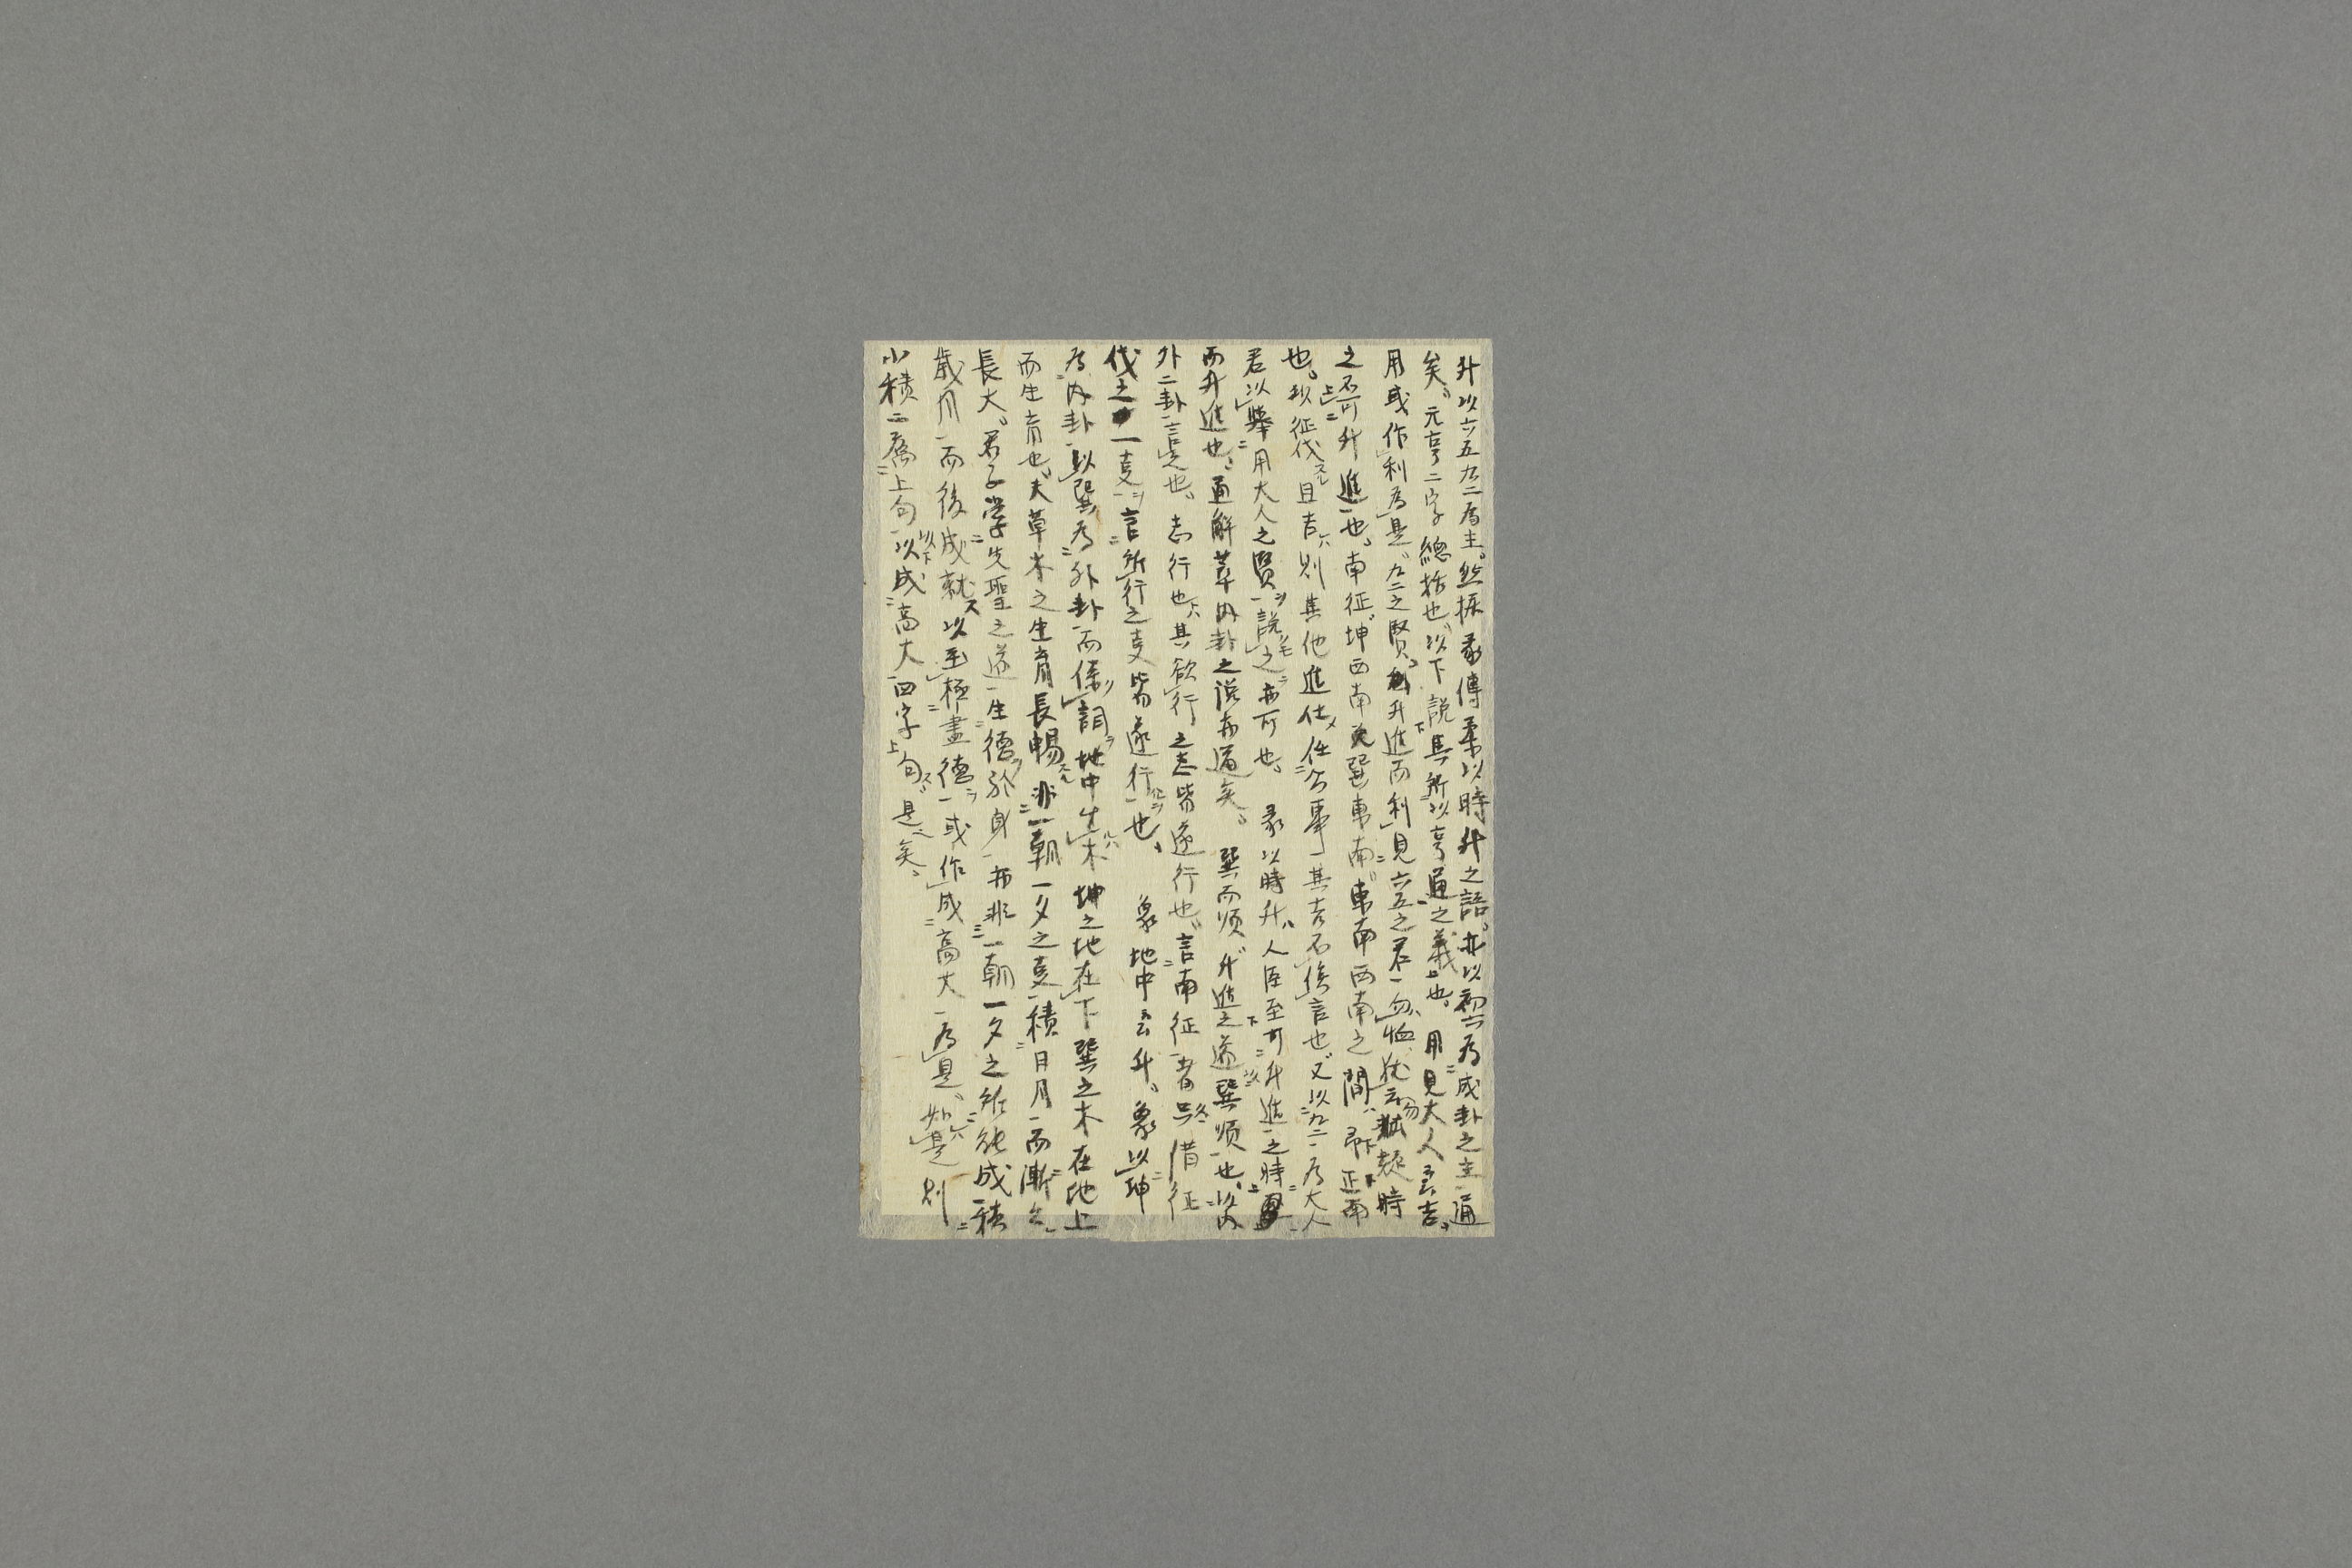 升以六五九二為主。然據彖傳柔以時升之語。亦以初六為成卦之主通
矣。元亨二字總括也。以下說其所以亨通之義也。用見大人云吉。
用或作利為是。九二之賢升進而利見六五之君勿恤猶云勿疑時
之不可升進也。南征坤西南巽東南東南西南之間正南
也。以征伐スル且吉則其他進仕公事其吉不俟言也又以九二為大人
君以擧用大人之賢說之亦可也。彖以時升。人臣至可升進之時
而升進也。通解萃内卦之說亦通矣。巽而順升進之道巽順也。以内
外二卦言也。志行也其欲行之志皆遂行也。言南征者只借征
伐之一支言所行之支皆遂行也。象地中云升。象以坤
為内卦以巽為外卦而係詞地中生木坤之地在下巽之木在地上
而生育也。夫草木之生育長暢スル非一朝一夕之支積日月而漸々
長大。君子學先聖之道生德於身亦非一朝一夕之所能成積
歲月而後成就ス以至極盡德或作成高大為是如是則
小積二属上句以成高大四字句是矣。